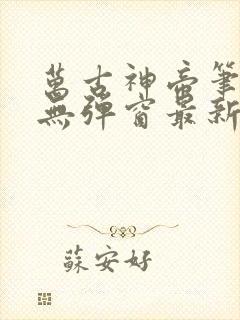 萬古神帝筆
無彈窗最新
蘇安好